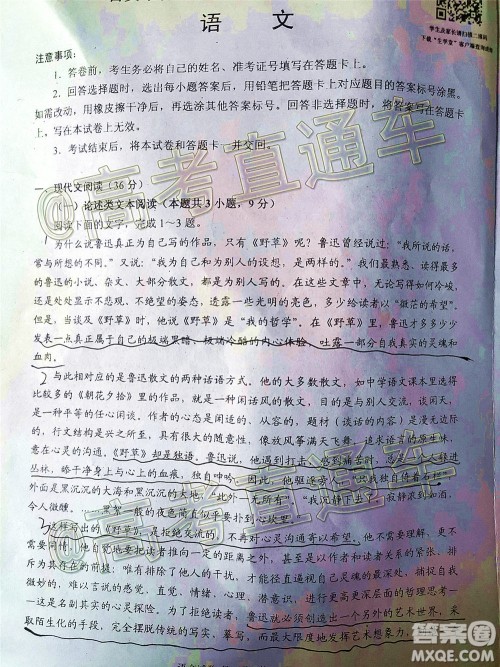 学生及家长请扫描二维码
下载“生学堂”客户端查询成绩
语 文
注意事项：
1. 答卷前，考生务必将自己的姓名、准考证号填写在答题卡上。
2. 回答选择题时，选出每小题答案后，用铅笔把答题卡上对应题目的答案标号涂黑。
如需改动，用橡皮擦干净后，再选涂其他答案标号。回答非选择题时，将答案写在答题卡
上。写在本试卷上无效。
3. 考试结束后，将本试卷和答题卡一并交回。
一、现代文阅读（36 分）
（一）论述类文本阅读（本题共 3 小题，9 分）
阅读下面的文字，完成 1～3 题。
为什么说鲁迅真正为自己写的作品，只有《野草》呢？鲁迅曾经说过：“我所说的话，
常与所想的不同。”又说：“我为自己和为别人的设想，是两样的。”我们最熟悉、读得最多
的鲁迅的小说、杂文、大部分散文，都是为别人写的。在这些文章中，无论写得如何冷峻，
还是处处显示不悲观、不绝望的姿态，透露一些光明的亮色，多少给读者以“微茫的希望”。
但是，当谈及《野草》时，他说《野草》是“我的哲学”。在《野草》里，鲁迅才多多少少
发表一点真正属于自己的极端黑暗、极端冷酷的内心体验，吐露一部分自我真实的灵魂和
血肉。
与此相对应的是鲁迅散文的两种话语方式。他的大多数散文，如中学语文课本里选得
比较多的《朝花夕拾》里的作品，就是一种闲话风的散文，目的是与别人交流，谈闲天，
是一种平等的任心闲谈。作者的心态是闲适的、从容的，题材（谈话的内容）是漫无边际
的，行文结构是兴之所至，具有很大的随意性，像放风筝满天飞，追求语言的原生味，
意在心灵的沟通。《野草》却是独语。鲁迅说，他遇到打击、感到痛苦时，总是一个人轻进
丛林，舔干净身上与心上的血痕，独自中吟。因此，他驱逐旁人，“只我独自倚着石栏”，
外面是黑沉沉的大海和黑沉沉的大地，“此外一无所有”，“我沉静下去了，寂静浓到如酒，
令人微醺。……黑絮一般的夜色简直似乎要扑到心坎里。”
这样写出的《野草》，是拒绝交流的，不再对心灵沟通寄以希望，他不需要理解，更不
需要同情。他自觉地要把读者推向一定的距离之外，甚至以作者和读者关系的紧张、排
斥为其存在的前提：唯有排除了他人的干扰，才能径直逼视自己灵魂的最深处，捕捉自我
微妙的、难以言说的感觉、直觉、情绪、心理、潜意识，进行更高更深层面的哲理思考—
—这是名副其实的心灵探险。为了拒绝读者，鲁迅就必须创造出一个另外的艺术世界，采
取陌生化的手段，完全摆脱传统的写实、摹写，而最大限度地发挥艺术想象力，
@高考直通车
@高考直通车
答案圈
MXQE.COM